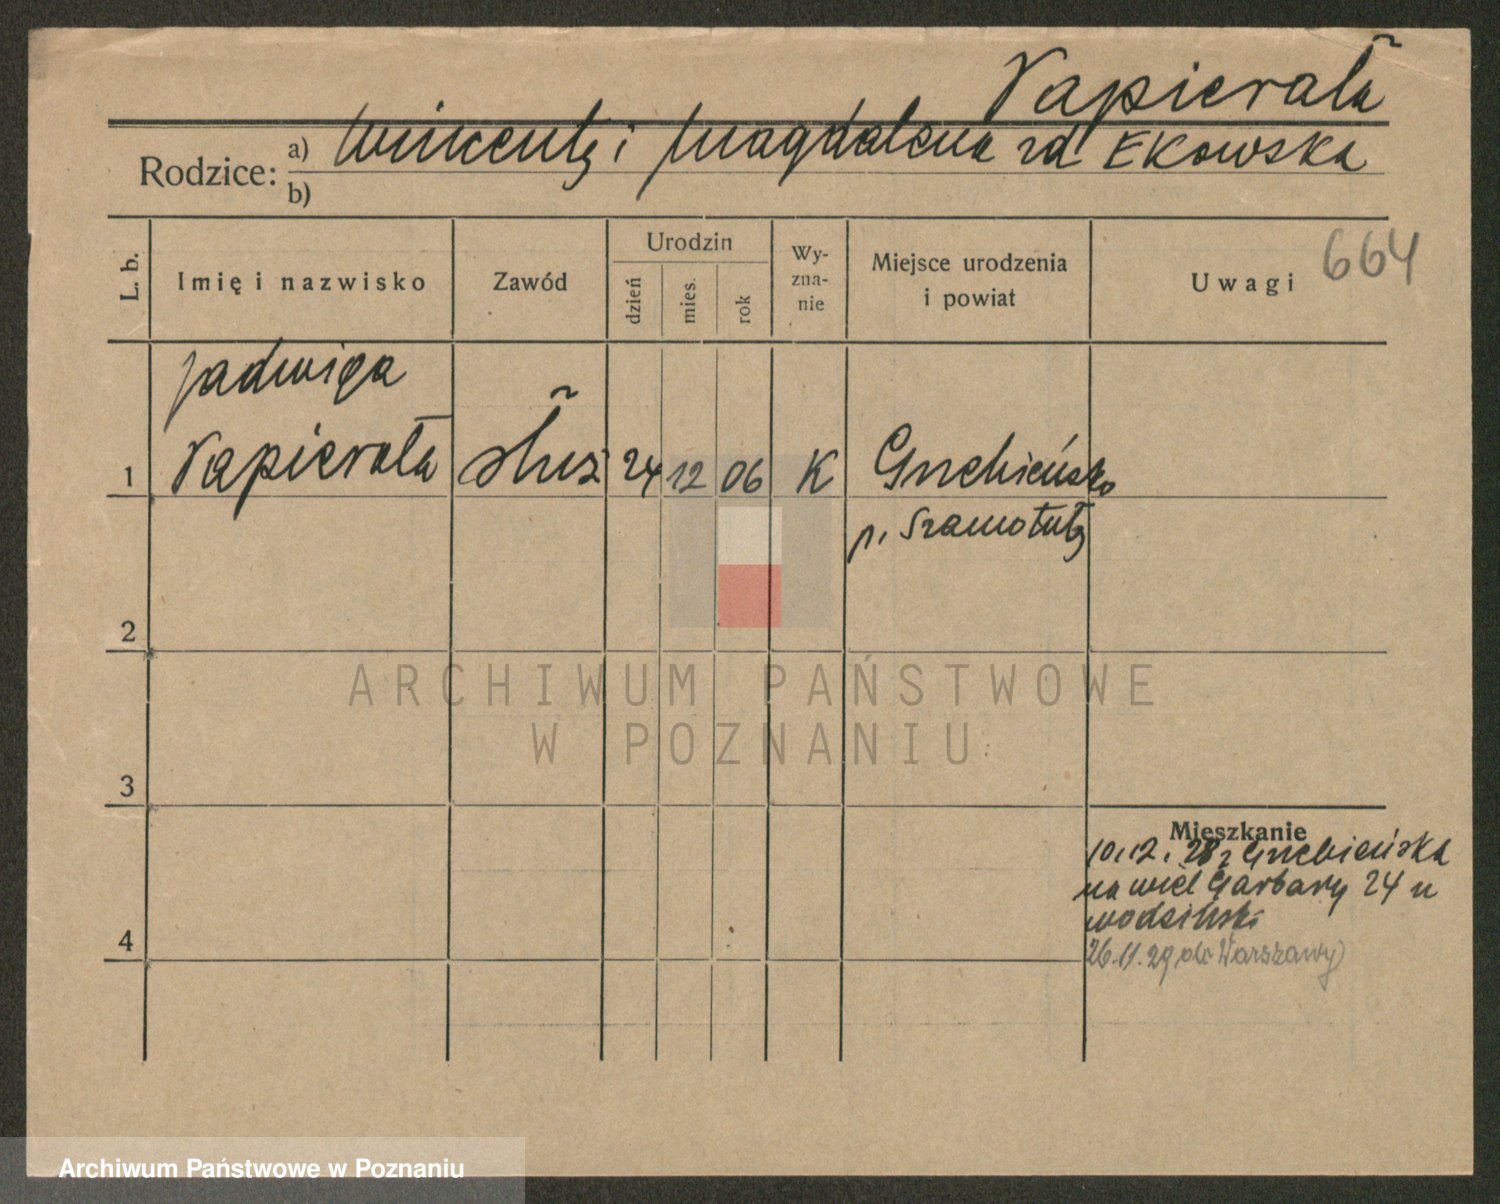 Napierała
Rodzice: a) Wincenty i Magdalena zd Ekowska
b)
664
L. b.
Imię i nazwisko
Zawód
Urodzin
dzień
mies.
rok
Wy-
zna-
nie
Miejsce urodzenia
i powiat
Uwagi
Jadwiga
1 Napierała służ 24 12 06 K Grzebieńsko
p. Szamotuły
2
ARCHIWUM PAŃSTWOWE
W POZNANIU
3
Mieszkanie
10.12. 28 z Grzebieńska
na wiel Garbary 24 u
Wodziński
4
26.11.29 do Warszawy)
Archiwum Państwowe w Poznaniu